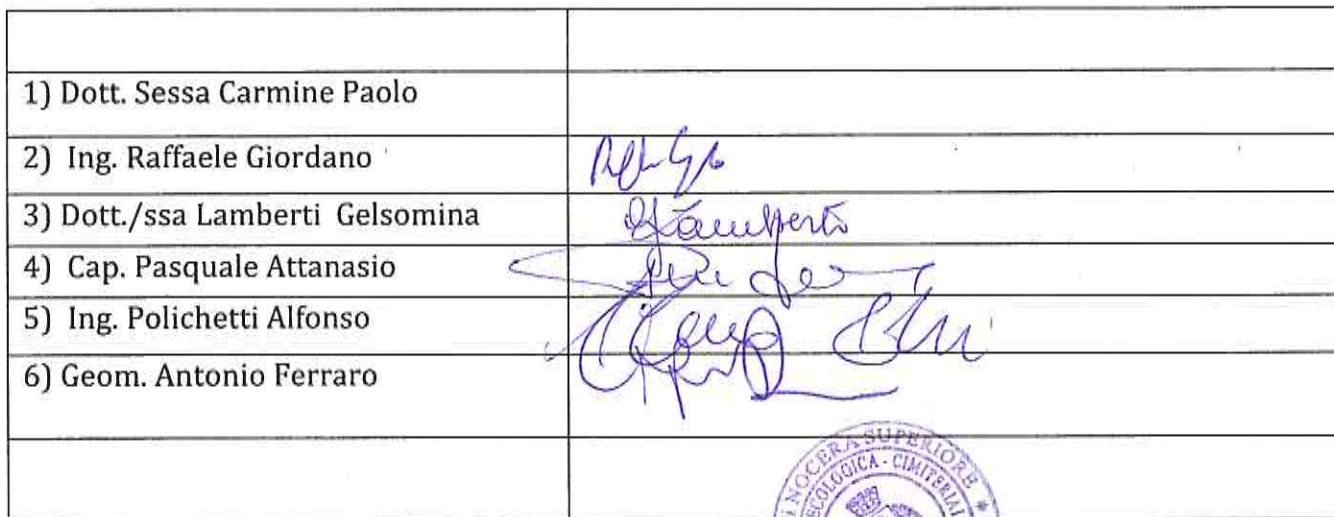 1) Dott. Sessa Carmine Paolo
2) Ing. Raffaele Giordano
3) Dott./ssa Lamberti Gelsomina
4) Cap. Pasquale Attanasio
5) Ing. Polichetti Alfonso
6) Geom. Antonio Ferraro
NOCERA SUPERIORE *
ECOLOGICA - CIMITERIAL